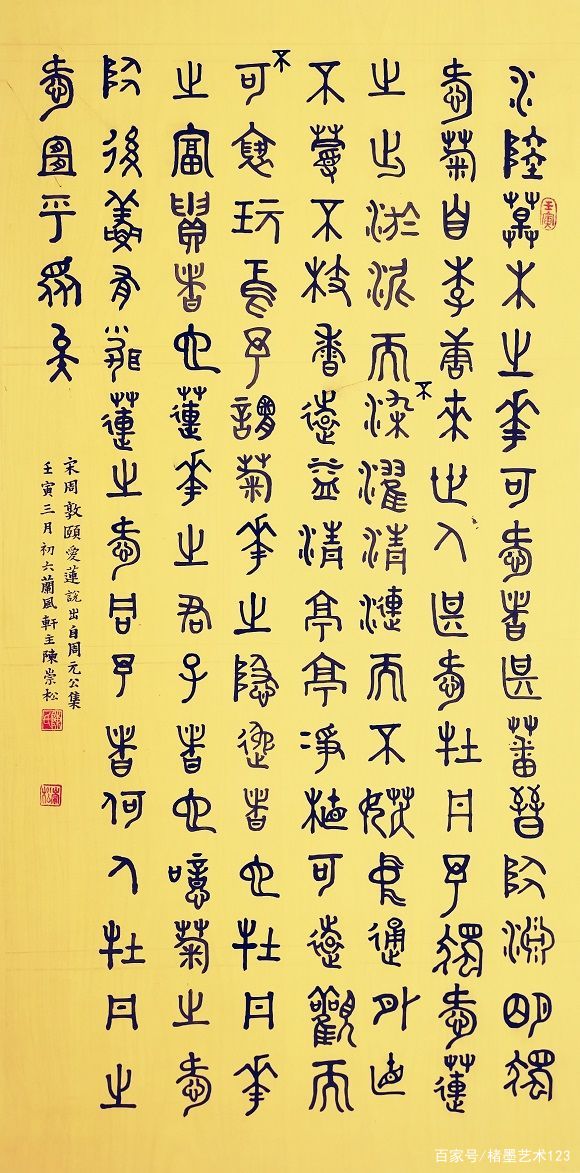 壬寅
水陸草木之華可愛者甚蕃晉陶淵明獨
愛菊自李唐來世人甚愛牡丹予獨愛蓮
之出淤泥而不染濯清漣而不妖中通外直
不蔓不枝香遠益清亭亭淨植可遠觀而
不可褻玩焉予謂菊華之隱逸者也牡丹華
之富貴者也蓮華之君子者也噫菊之愛
陶後鮮有聞蓮之愛同予者何人牡丹之
愛宜乎眾矣
宋周敦頤愛蓮說出自周元公集
壬寅三月初六蘭風軒主陳崇松
百家号/楮墨艺术123